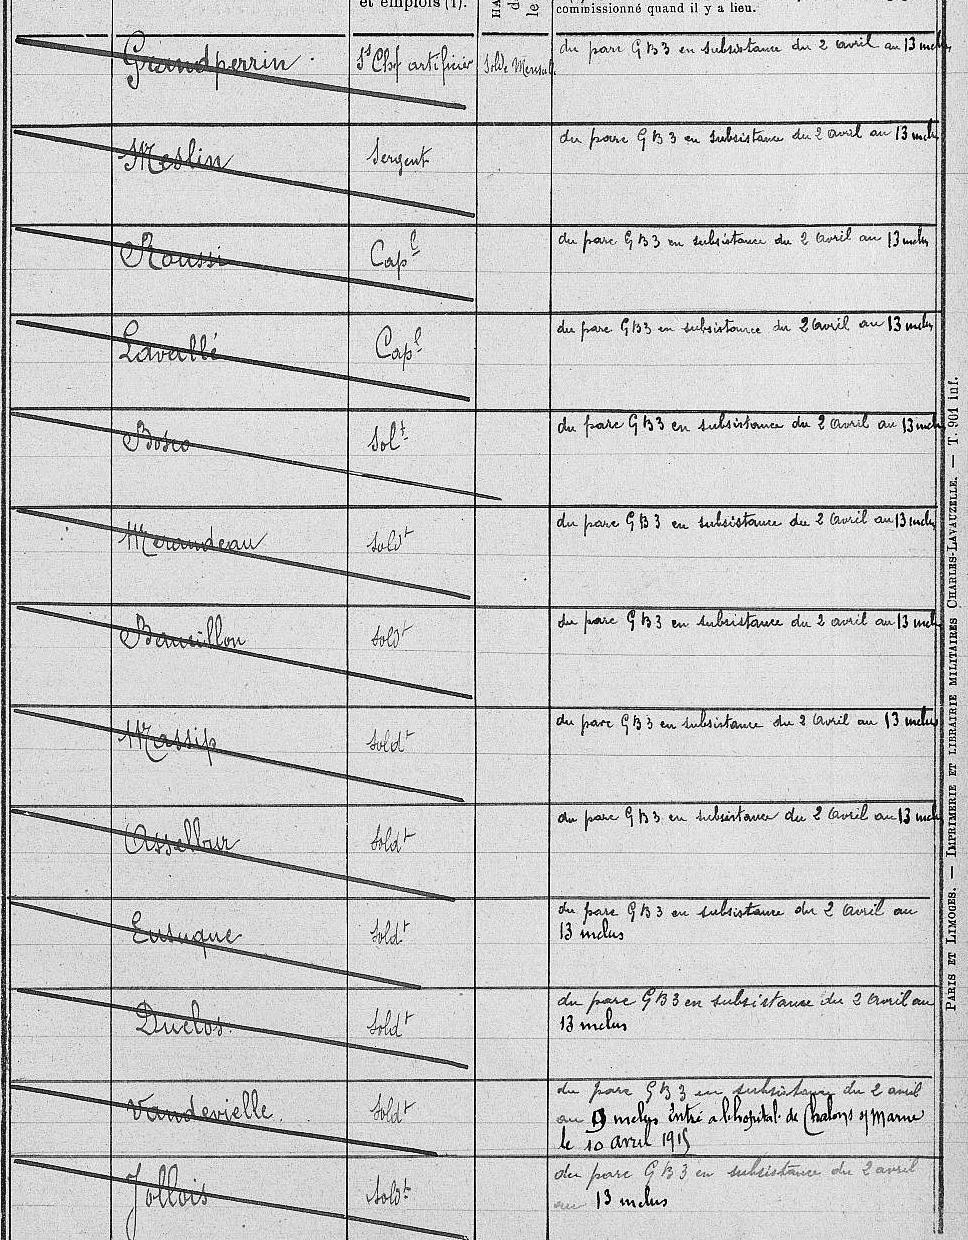 et emplois (1).
HA
d
le
commissionné quand il y a lieu.
Grandperrin S/s Chef artificier Solde Mensuel. du parc GB3 en subsistance du 2 avril au 13 inclus
Meslin Sergent du parc GB3 en subsistance du 2 avril au 13 inclus
Roussi Capl du parc GB3 en subsistance du 2 Avril au 13 inclus
Lavallé Capl du parc GB3 en subsistance du 2 Avril au 13 inclus
Bosco Solt du parc GB3 en subsistance du 2 Avril au 13 inclus
Merandeau Soldt du parc GB3 en subsistance du 2 Avril au 13 inclus
Soldt du parc GB3 en subsistance du 2 avril au 13 inclus
Massip Soldt du parc GB3 en subsistance du 2 Avril au 13 inclus
Soldt du parc GB3 en subsistance du 2 Avril au 13 inclus
Eusuque Soldt du parc GB3 en subsistance du 2 Avril au
13 inclus
Duclos Soldt du parc GB3 en subsistance du 2 Avril au
13 inclus
Vandevielle Soldt du parc GB3 en subsistance du 2 avril
au 9 inclus Entré a l'hopital de Chalons s/ Marne
le 10 avril 1915
Jollois Soldt du parc GB3 en subsistance du 2 avril
au 13 inclus
PARIS ET LIMOGES. — IMPRIMERIE ET LIBRAIRIE MILITAIRES CHARLES-LAVAUZELLE. — T. 901 inf.